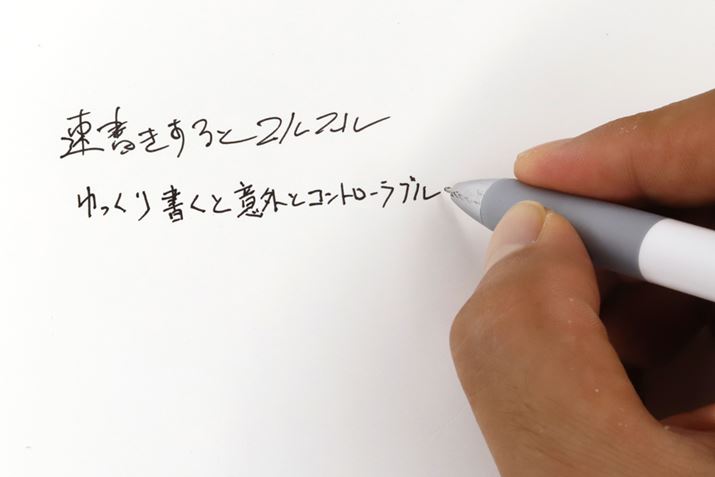 速書きするとヌルヌル
ゆっくり書くと意外とコントローラブル